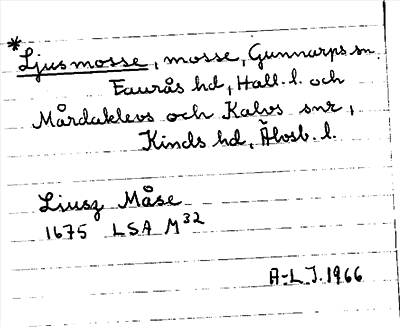 *Ljusmosse, mosse, Gunnarps sn.
Faurås hd, Hall. l. och
Mårdaklevs och Kalvs snr,
Kinds hd, Älvsb. l.
Liusz Måse
1675 LSA M32
A-L J. 1966